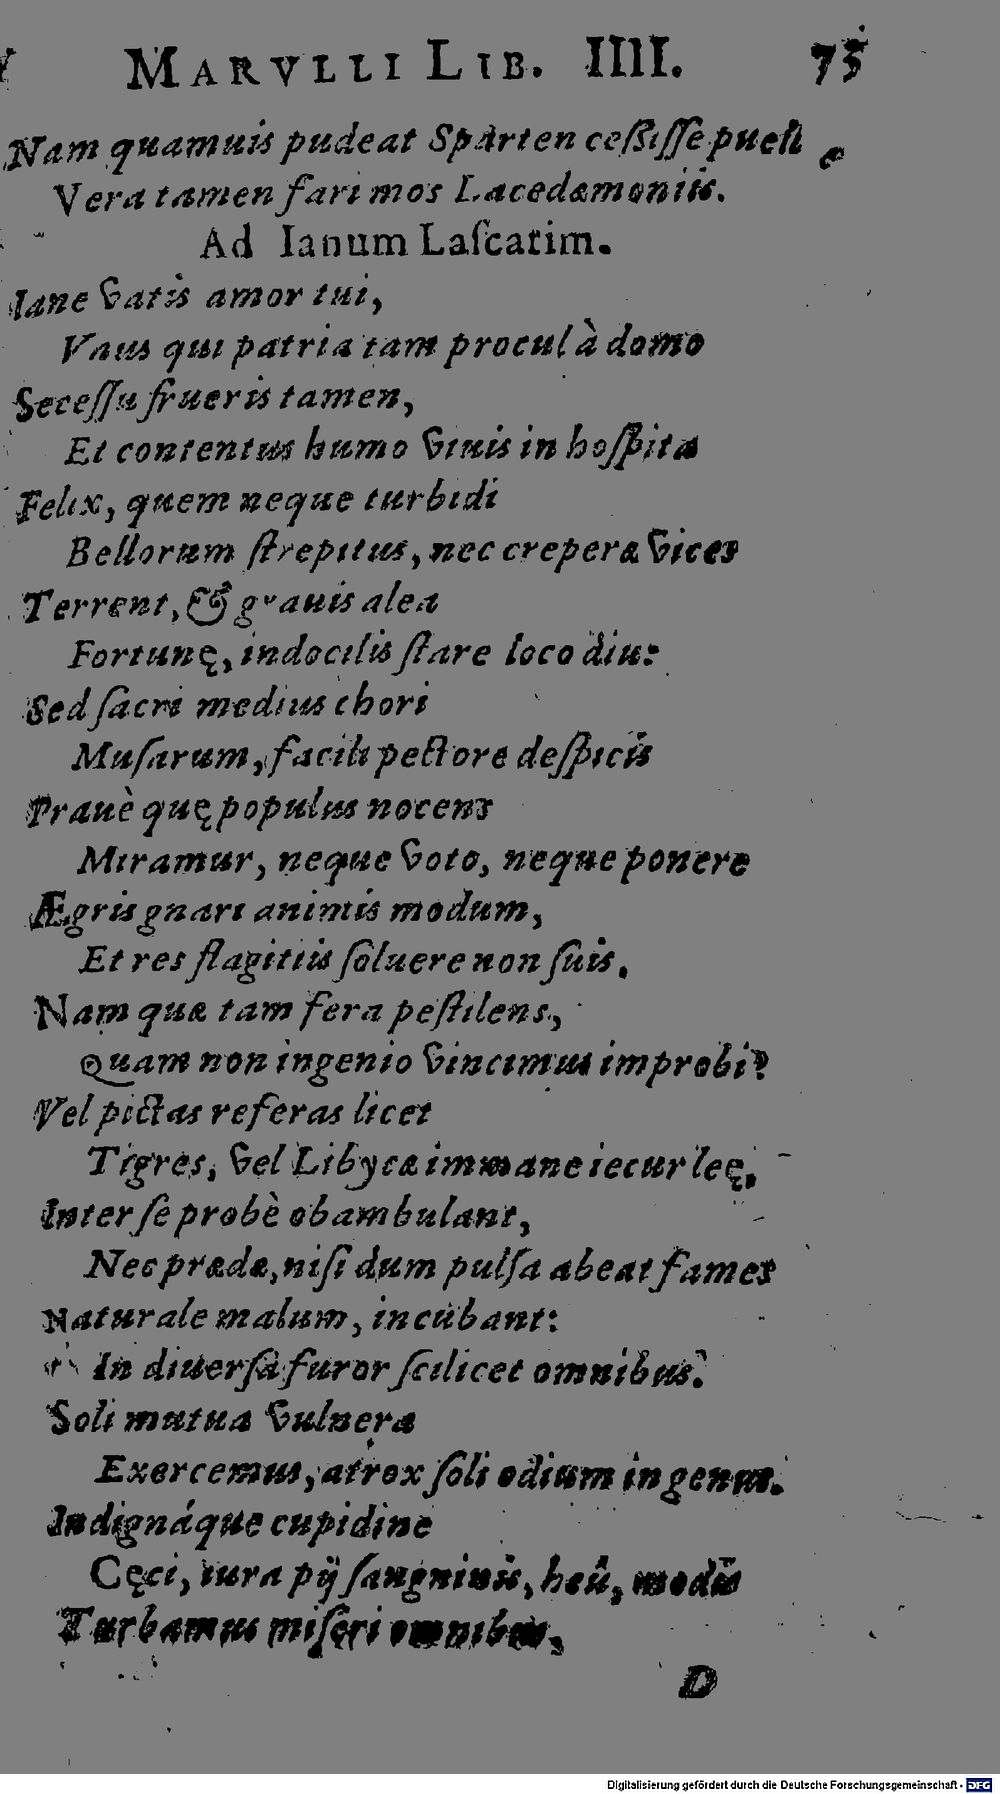 MARVLLI LIB. IIII. 75
Nam quamuis pudeat Sparten ceßiſſe puell
Vera tamen fari mos Lacedæmoniis.
Ad Ianum Laſcatim.
Iane vatis amor tui,
Vnus qui patria tam procul à domo
Seceſſu frueris tamen,
Et contentus humo viuis in hoſpita
Felix, quem neque turbidi
Bellorum ſtrepitus, nec creperæ vices
Terrent, & grauis alea
Fortunę, indocilis ſtare loco diu:
Sed ſacri medius chori
Muſarum, facili pectore deſpicis
Prauè quę populus nocens
Miramur, neque voto, neque ponere
Ægris gnari animis modum,
Et res flagitiis ſoluere non ſuis.
Nam quæ tam fera peſtilens,
Quam non ingenio vincimus improbi?
Vel pictas referas licet
Tigres, vel Libycæ immane iecur leę.
Inter ſe probè obambulant,
Nec prædæ, niſi dum pulſa abeat fames
Naturale malum, incubant:
In diuerſa furor ſcilicet omnibus.
Soli mutua vulnera
Exercemus, atrox ſoli odium in genus.
Indignáque cupidine
Cęci, iura pij ſanguinis, heû, modis
Turbamus miſeri omnibus,
D
Digitalisierung gefördert durch die Deutsche Forschungsgemeinschaft - DFG